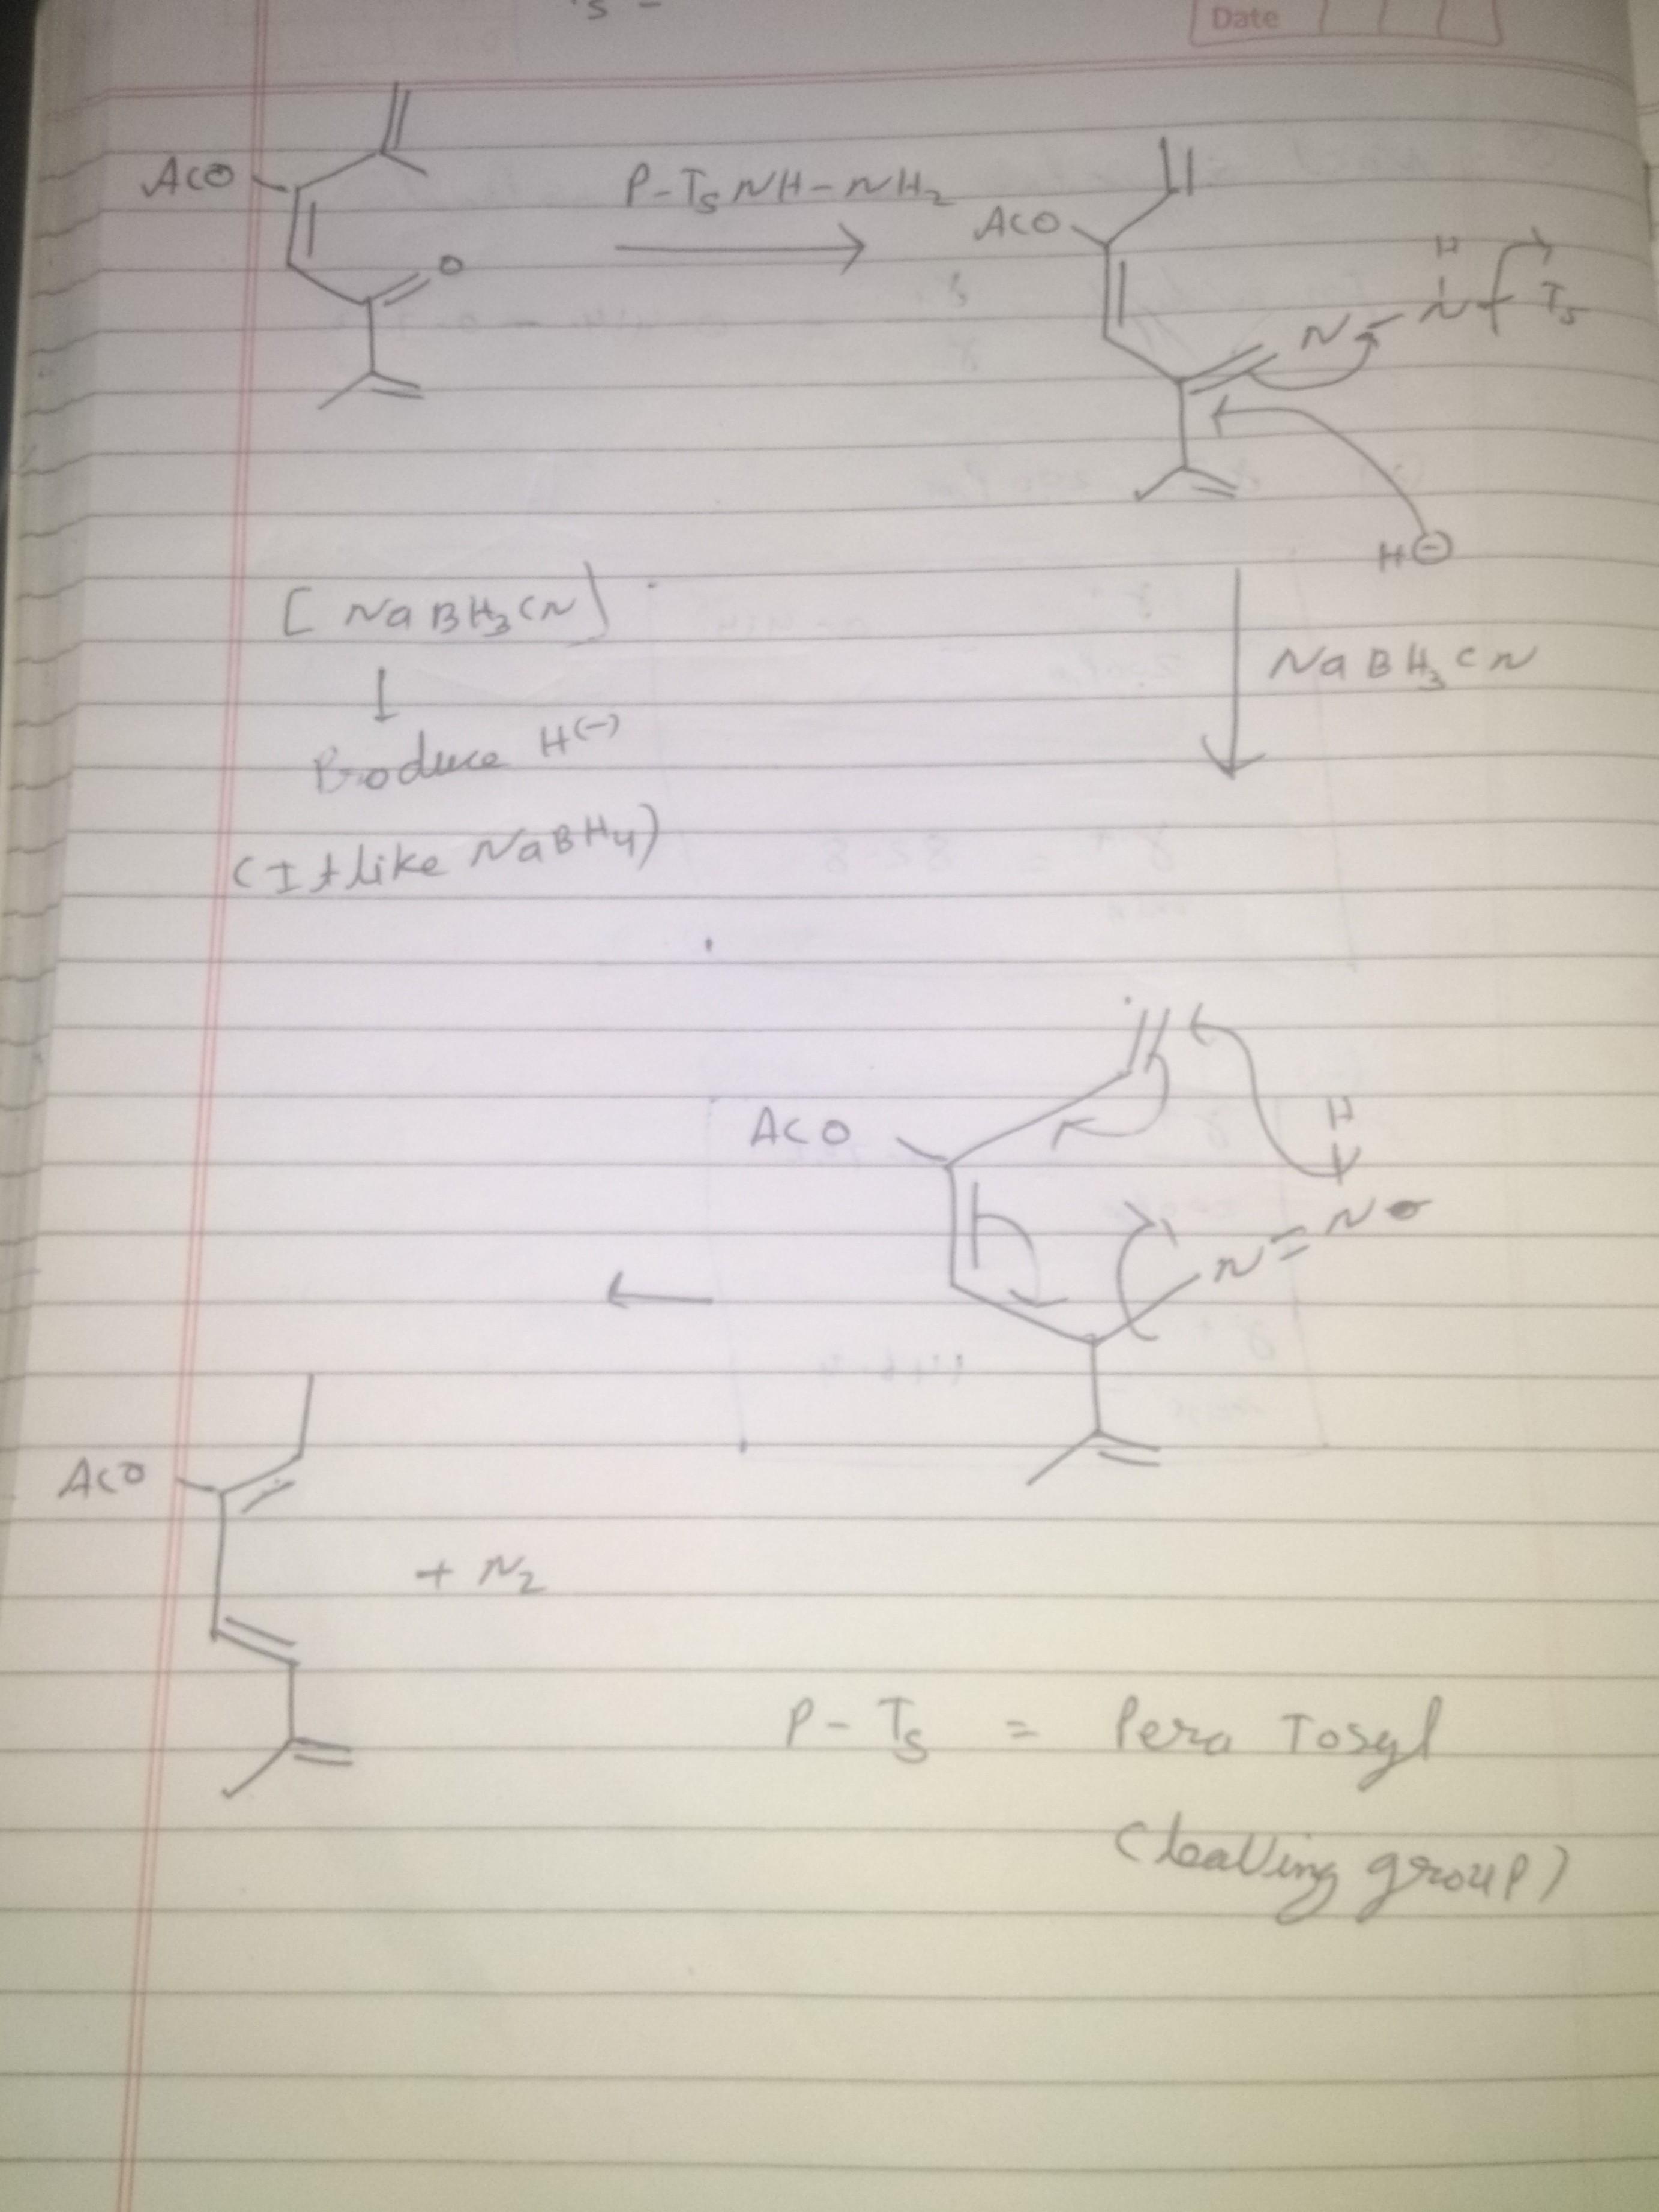 Date
AcO
O
P-Ts NH-NH2
AcO
H
N-N Ts
H⊖
[NaBH3CN]
NaBH3CN
Produce H(-)
(It like NaBH4)
AcO
H
N=N
AcO
+ N2
P-Ts = Pera Tosyl
(leaving group)